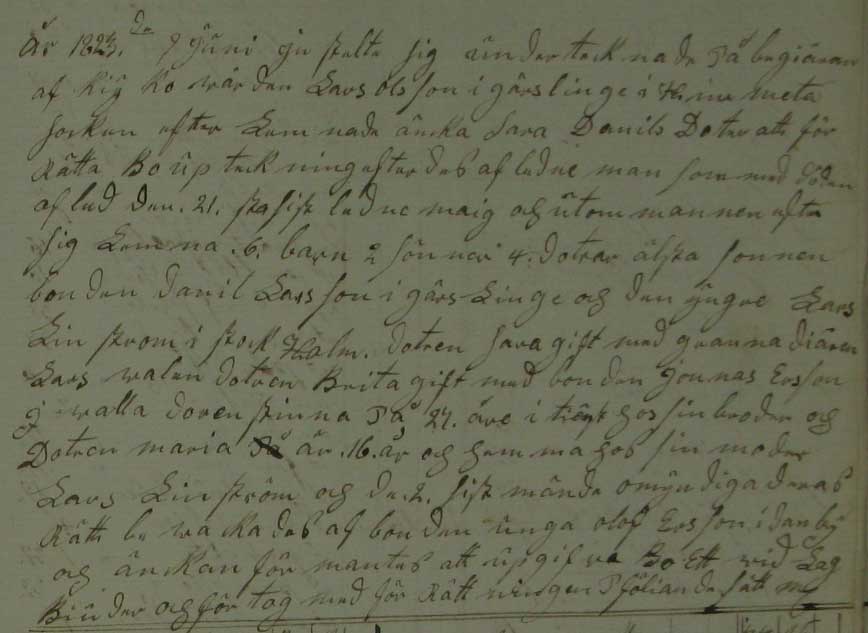 År 1823. dn 7 Jüni in stelte sig ünderteck nade På begiäran
af Kÿ Ko wär den Lars olsson i gärslinge i meta
socken efter Lem nade äncka Sara Danils Doter att för
Rätta Bo üp teck ning efter des af ledne man som med döden
af led Den. 21. sist ledne maig og ütom mannen efter
sig Lem na .6. barn 2 sönner 4. dotrar älsta sonnen
bonden Danil Larsson i gärs Linge og den ÿngre Lars
Lin strom i stock Halm. dotren Sara gift med granna diären
Lars walen dotren Brita gift med bonden Jonnas Ersson
j walla doren stinna På 27. åre i tienst hos sin broder og
Dotren maria är .16. år og hemma hos sin moder
Lars Linström og de .2. sist mände omÿndiga deras
Rätt be wackades af bonden ünga olof Ersson i danbÿ
og änckan för mantes att üpgifva Bo Ett wid Lag
Biüder og för tog med för Rätt ningen På föliande sätt